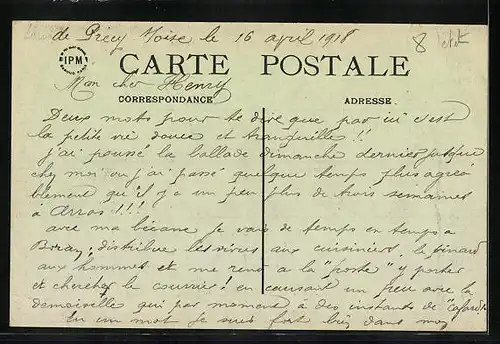 de Précy Moise le 16 avril 1918
8
IPM
CARTE POSTALE
Mon cher Henry
CORRESPONDANCE
ADRESSE
Deux mots pour te dire que par ici c'est
la petite vie douce et tranquille !!
j'ai poussé la ballade dimanche dernier jusque
chez moi ou j'ai passé quelque temps plus agrea
blement que il y a un peu plus de trois semaines
à Arras !!!
avec ma bécane je vais de temps en temps a
Bray, distribue les vivres aux cuisiniers, le pinard
aux hommes et me rend a la "poste" y porter
et chercher le courrier ! en causant un peu avec la
demoiselle qui par moment à des instants de "cafard".
En un mot je suis fort bien dans mon